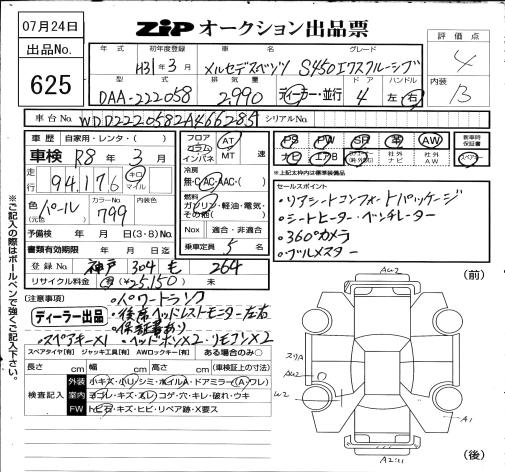 07月24日
出品No.
625
ZIP オークション出品票
評価点
4
内装
B
年式 初年度登録 車名 グレード
H31年3月 メルセデスベンツ S450エクスクルーシブ
型式 排気量 ドア ハンドル
DAA-222058 2,990 ディーラー・並行 4 左・右
車台No. WDD2220582A466285 シリアルNo.
車歴 自家用・レンタ・( )
車検 R8年3月
走行 94,176 キロ マイル
色 パール (元色) カラーNo. 799
予備検 年 月 日(3・8)No.
書類有効期限 年 月 日迄
登録No. 神戸 304 も 264
リサイクル料金 (¥25,150) 未
フロア コラム インパネ AT MT 速
冷房 無・C・AC・AAC・( )
燃料 ガソリン・軽油・電気・その他( )
Nox 適合・非適合
乗車定員 5名
PS PW SR 革 AW 新車時保証書
ナビ エアB 社外ナビ 社外AW スペアキー
※上記太枠内は標準装備品
セールスポイント
・リアシートコンフォートパッケージ
・シートヒーター・ベンチレーター
・360°カメラ
・ブルメスター
注意事項
ディーラー出品
・パワートランク
・後席ヘッドレストモニター左右
・保証書あり
・スペアキーX1 ・ヘッドホンX2・リモコンX2
スペアタイヤ[有] ジャッキ工具[有] AWロックキー[有] ある場合のみ○
長さ cm 幅 cm 高さ cm (車検証上の寸法)
検査記入
外装 小キズ・小リ・シミ・ホイルA・ドアミラー(A・ワレ)
室内 ヨゴレ・キズ・スレ・コゲ・穴・キレ・破れ・ウキ
FW トビ石・キズ・ヒビ・リペア跡・X要ス
ご記入の際はボールペンで強くご記入下さい。
(前)
AU2
スリA
AU2
W2
A1
A2
(後)